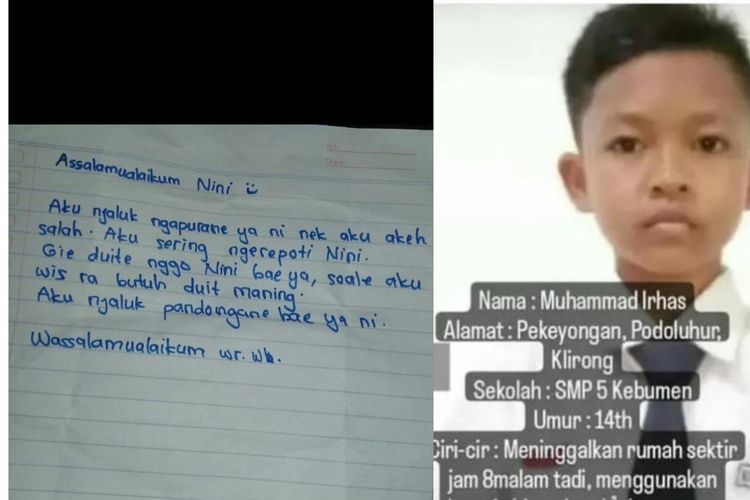 Assalamualaikum Nini
Aku njaluk ngapurane ya ni nek aku akeh
salah. Aku sering ngerepoti Nini.
Gie duite nggo Nini bae ya, soale aku
wis ra butuh duit maning.
Aku njaluk pandongane bae ya ni.
Wassalamualaikum wr. wb.
Nama : Muhammad Irhas
Alamat : Pekeyongan, Podoluhur,
Klirong
Sekolah : SMP 5 Kebumen
Umur : 14th
Ciri-cir : Meninggalkan rumah sektir
jam 8malam tadi, menggunakan